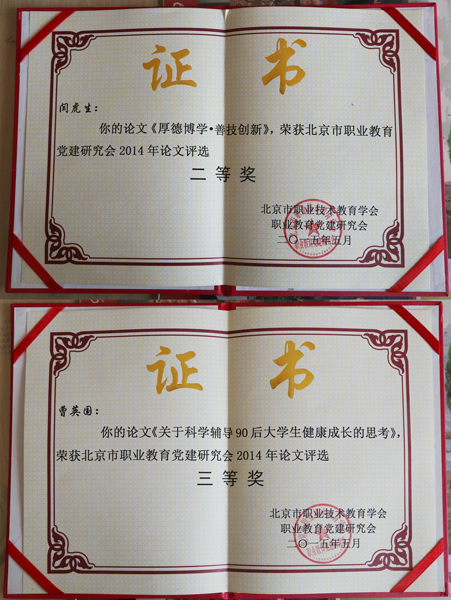 证 书
闫虎生：
你的论文《厚德博学•善技创新》，荣获北京市职业教育
党建研究会2014年论文评选
二等奖
北京市职业技术教育学会
职业教育党建研究会
二〇一五年五月
证 书
曹英国：
你的论文《关于科学辅导90后大学生健康成长的思考》，
荣获北京市职业教育党建研究会2014年论文评选
三等奖
北京市职业技术教育学会
职业教育党建研究会
二〇一五年五月